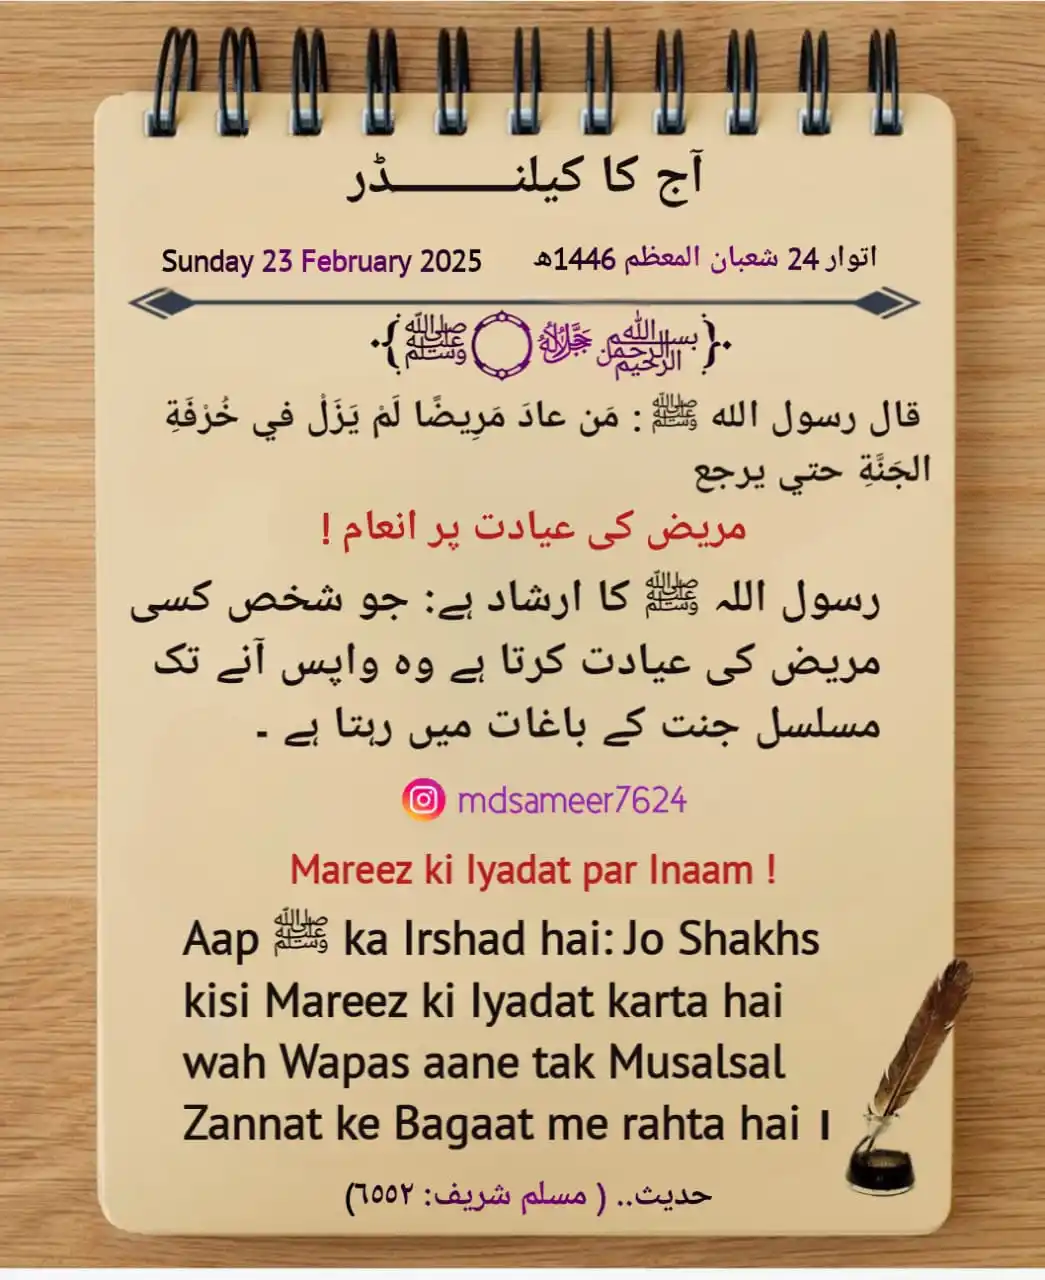 آج کا کیلنـــــــــڈر
Sunday 23 February 2025 اتوار 24 شعبان المعظم 1446ھ
﷽ ﷻ ﷺ
قال رسول الله ﷺ : مَن عادَ مَرِيضًا لَمْ يَزَلْ في خُرْفَةِ
الجَنَّةِ حتي يرجع
مریض کی عیادت پر انعام !
رسول اللہ ﷺ کا ارشاد ہے: جو شخص کسی
مریض کی عیادت کرتا ہے وہ واپس آنے تک
مسلسل جنت کے باغات میں رہتا ہے ۔
mdsameer7624
Mareez ki Iyadat par Inaam !
Aap ﷺ ka Irshad hai: Jo Shakhs
kisi Mareez ki Iyadat karta hai
wah Wapas aane tak Musalsal
Zannat ke Bagaat me rahta hai ।
حدیث.. ( مسلم شریف: ٦٥٥٢)